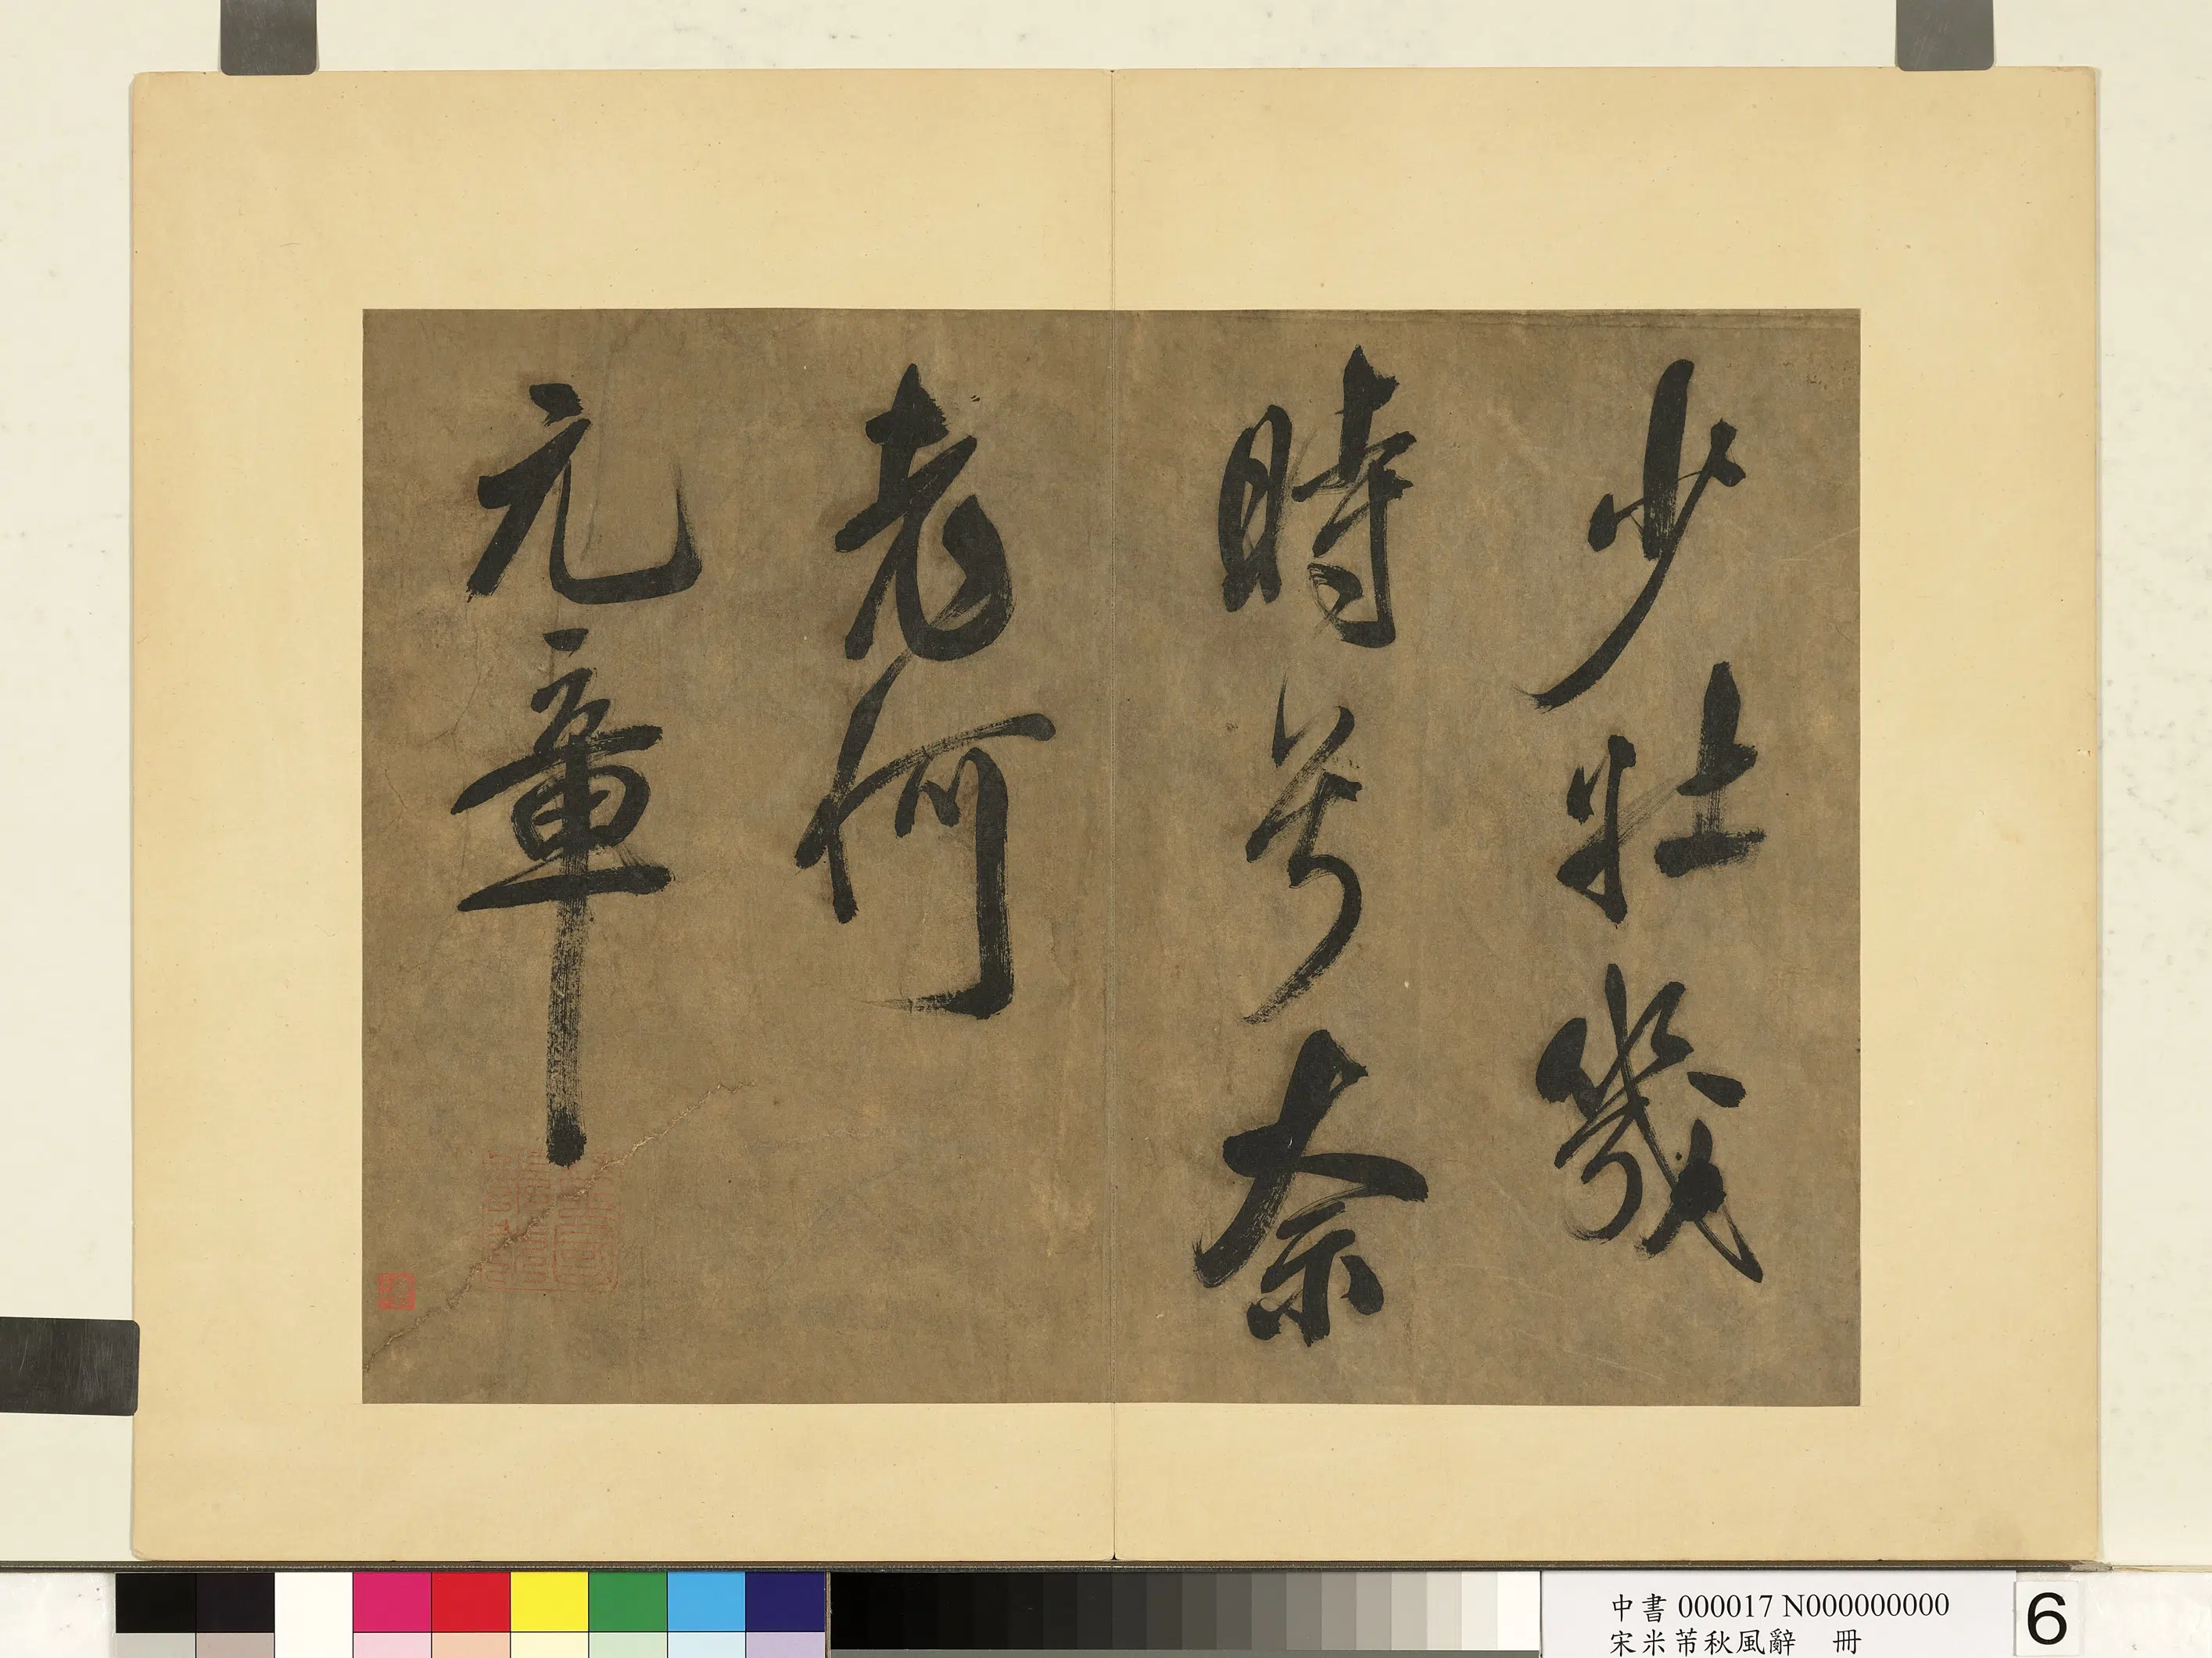 少壯幾
時兮奈
老何
元章
中書 000017 N000000000
宋米芾秋風辭 冊
6